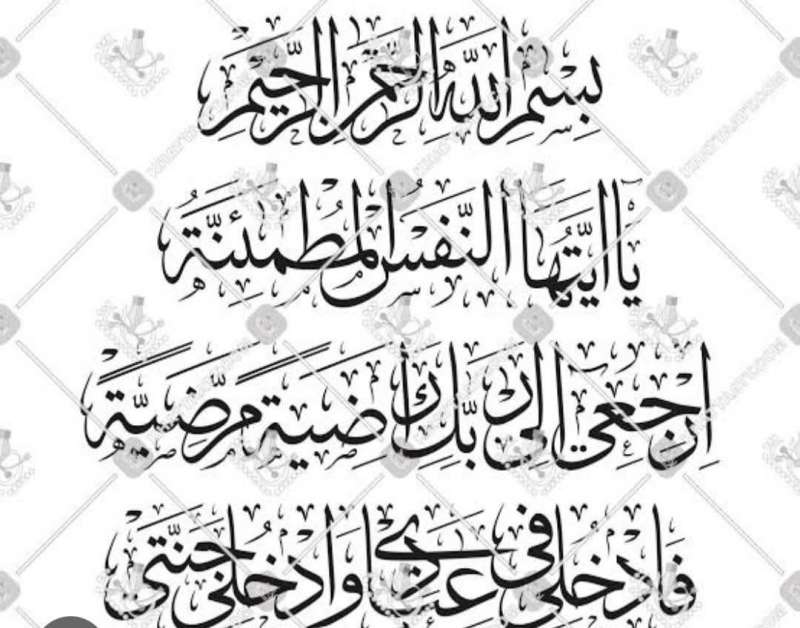 بِسْمِ اللهِ الرَّحْمٰنِ الرَّحِيْمِ
يَا اَيَّتُهَا النَّفْسُ الْمُطْمَئِنَّةُ
اِرْجِعِيْ اِلٰى رَبِّكِ رَاضِيَةً مَّرْضِيَّةً
فَادْخُلِيْ فِيْ عِبَادِيْ وَادْخُلِيْ جَنَّتِيْ